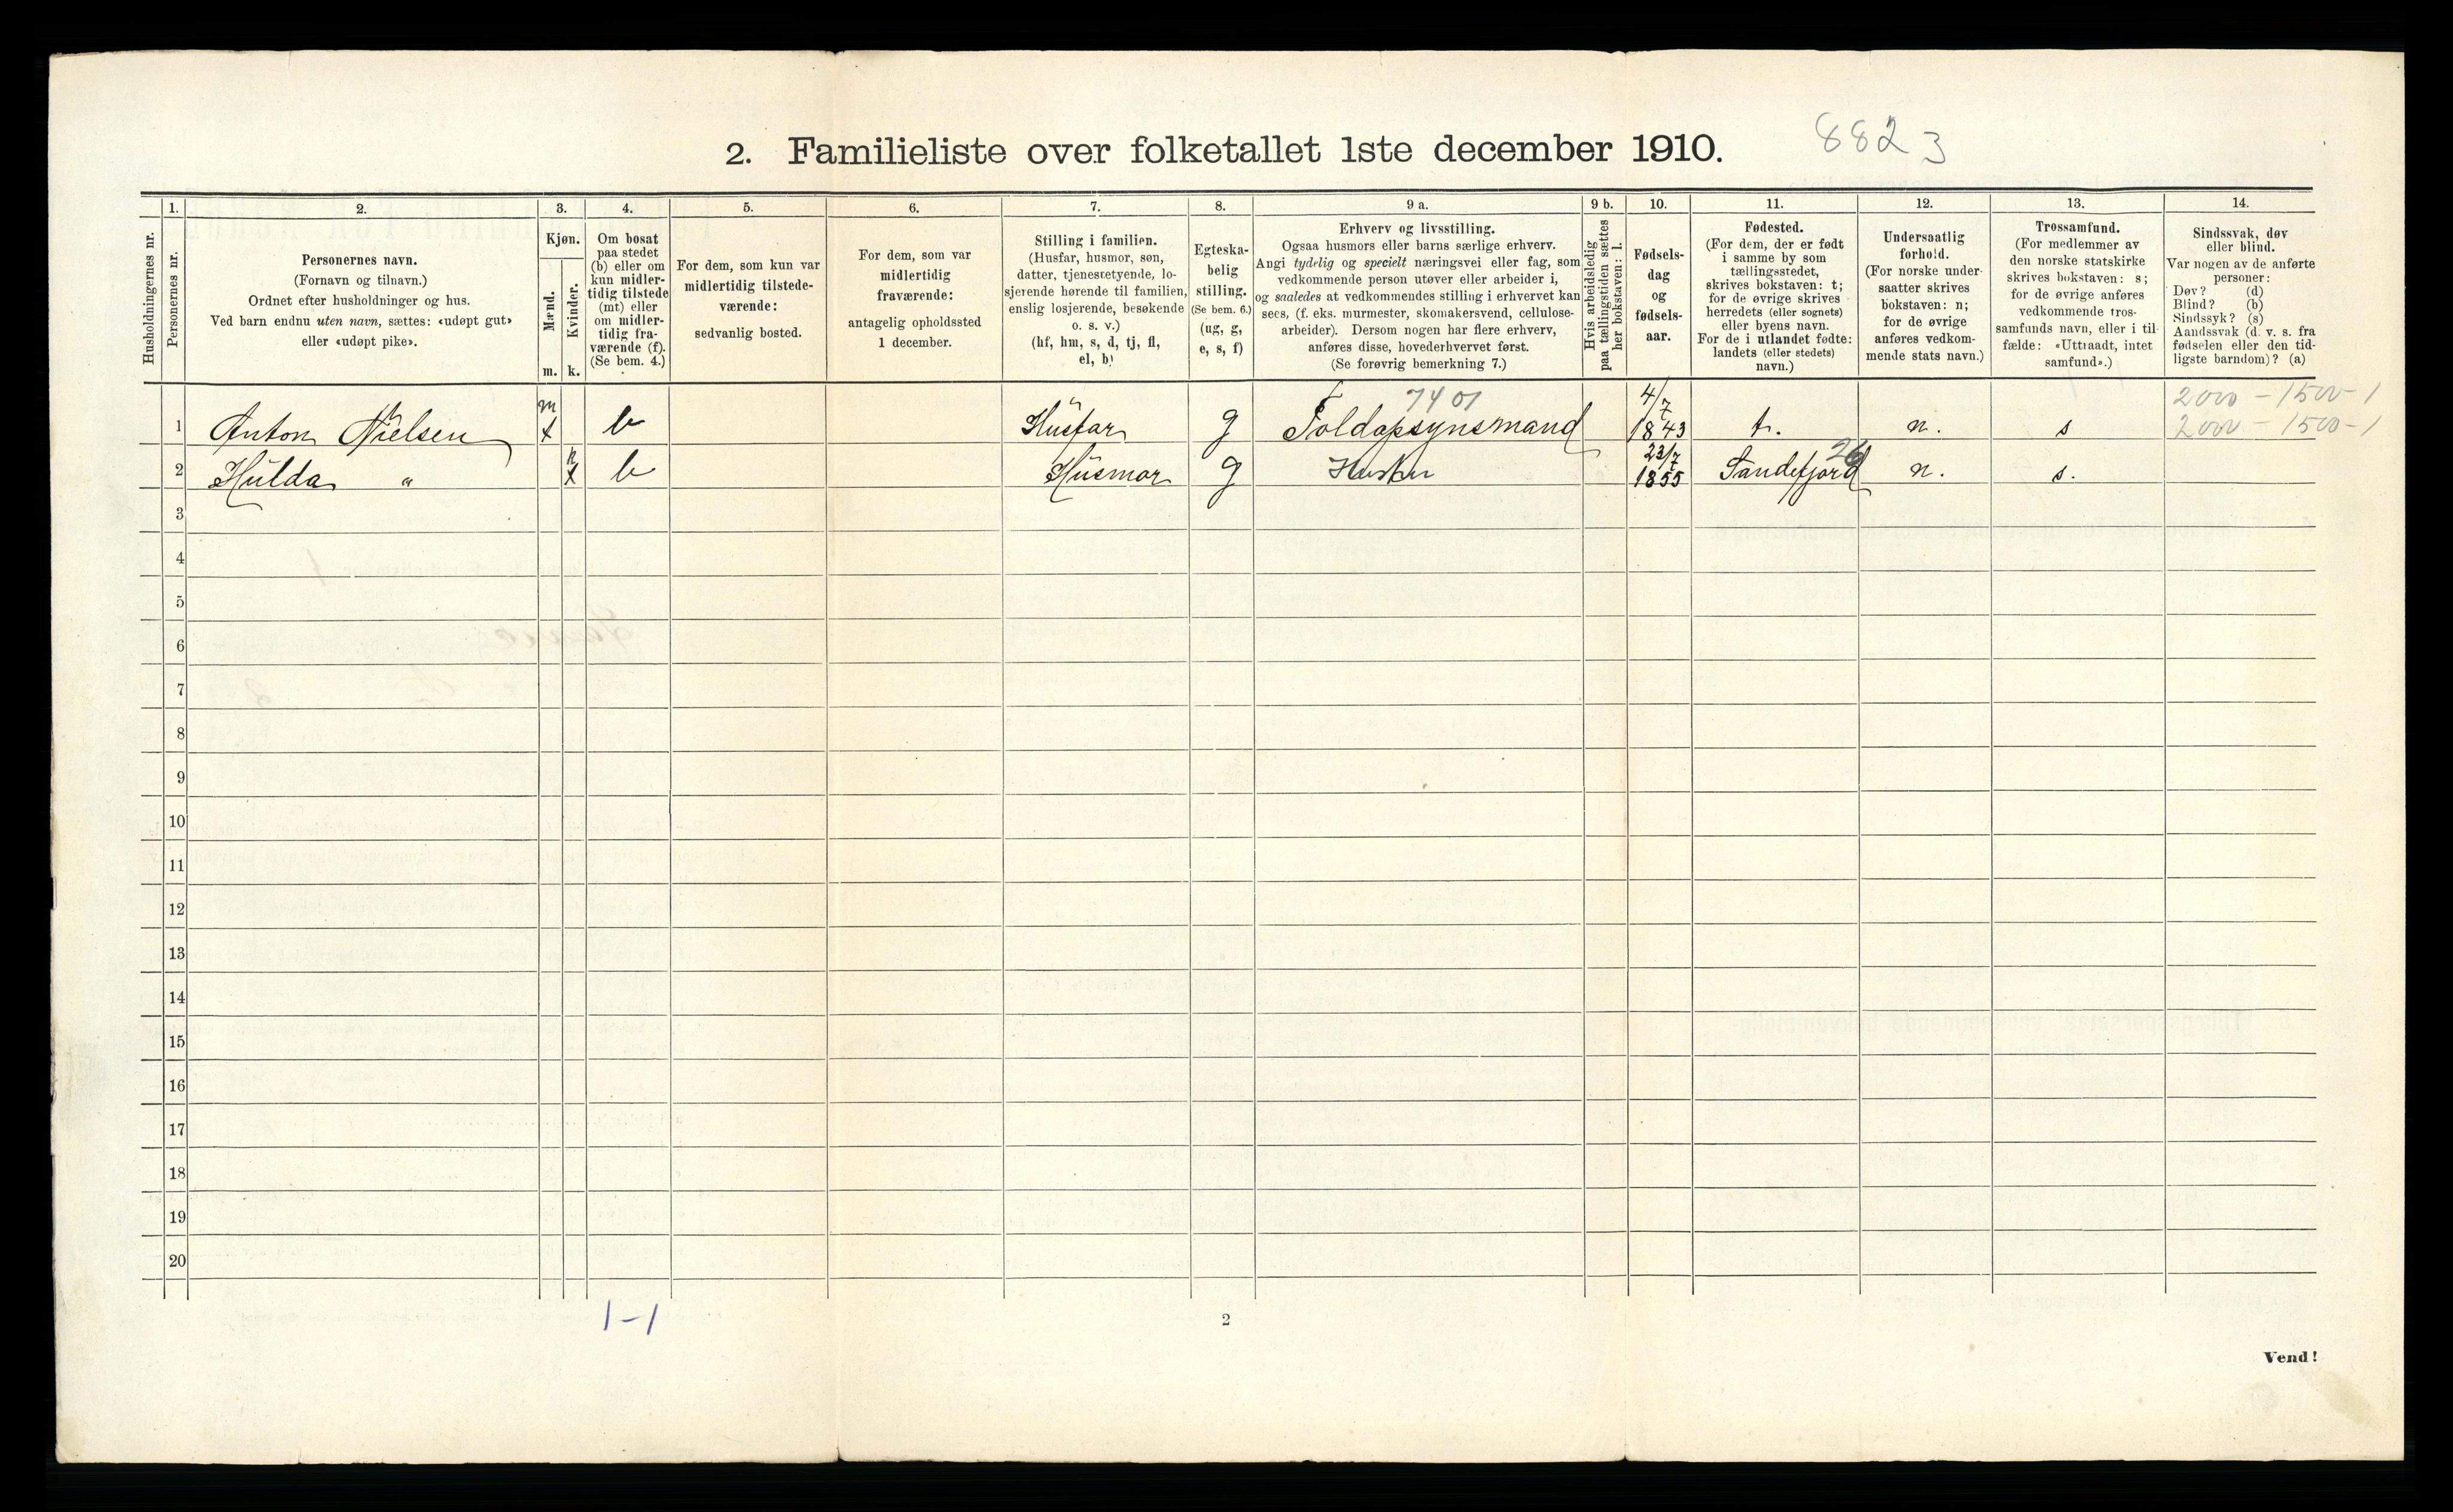 2. Familieliste over folketallet 1ste december 1910.
8823
Husholdningernes nr.
1.
Personernes nr.
2.
Personernes navn.
(Fornavn og tilnavn.)
Ordnet efter husholdninger og hus.
Ved barn endnu uten navn, sættes: «udøpt gut»
eller «udøpt pike».
3.
Kjøn.
Mænd.
m.
Kvinder.
k.
4.
Om bosat
paa stedet
(b) eller om
kun midler-
tidig tilstede
(mt) eller
om midler-
tidig fra-
værende (f).
(Se bem. 4.)
5.
For dem, som kun var
midlertidig tilstede-
værende:
sedvanlig bosted.
6.
For dem, som var
midlertidig
fraværende:
antagelig opholdssted
1 december.
7.
Stilling i familien.
(Husfar, husmor, søn,
datter, tjenestetyende, lo-
sjerende hørende til familien,
enslig losjerende, besøkende
o. s. v.)
(hf, hm, s, d, tj, fl,
el, b)
8.
Egteska-
belig
stilling.
(Se bem. 6.)
(ug, g,
e, s, f)
9 a.
Erhverv og livsstilling.
Ogsaa husmors eller barns særlige erhverv.
Angi tydelig og specielt næringsvei eller fag, som
vedkommende person utøver eller arbeider i,
og saaledes at vedkommendes stilling i erhvervet kan
sees, (f. eks. murmester, skomakersvend, cellulose-
arbeider). Dersom nogen har flere erhverv,
anføres disse, hovederhvervet først.
(Se forøvrig bemerkning 7.)
9 b.
Hvis arbeidsledig
paa tællingstiden sættes
her bokstaven: l.
10.
Fødsels-
dag
og
fødsels-
aar.
11.
Fødested.
(For dem, der er født
i samme by som
tællingsstedet,
skrives bokstaven: t;
for de øvrige skrives
herredets (eller sognets)
eller byens navn.
For de i utlandet fødte:
landets (eller stedets)
navn.)
12.
Undersaatlig
forhold.
(For norske under-
saatter skrives
bokstaven: n;
for de øvrige
anføres vedkom-
mende stats navn.)
13.
Trossamfund.
(For medlemmer av
den norske statskirke
skrives bokstaven: s;
for de øvrige anføres
vedkommende tros-
samfunds navn, eller i til-
fælde: «Uttraadt, intet
samfund».)
14.
Sindssvak, døv
eller blind.
Var nogen av de anførte
personer:
Døv? (d)
Blind? (b)
Sindssyk? (s)
Aandssvak (d. v. s. fra
fødselen eller den tid-
ligste barndom)? (a)
7401
2000 - 1500 - 1
1 Anton Nielsen m x b Husfar g Toldopsynsmand 4/7 1843 t. n. s 2000 - 1500 - 1
2 Hulda " k x b Husmor g Hustru 23/7 1855 Sandefjord 26 n. s.
3
4
5
6
7
8
9
10
11
12
13
14
15
16
17
18
19
20
1-1
2
Vend!